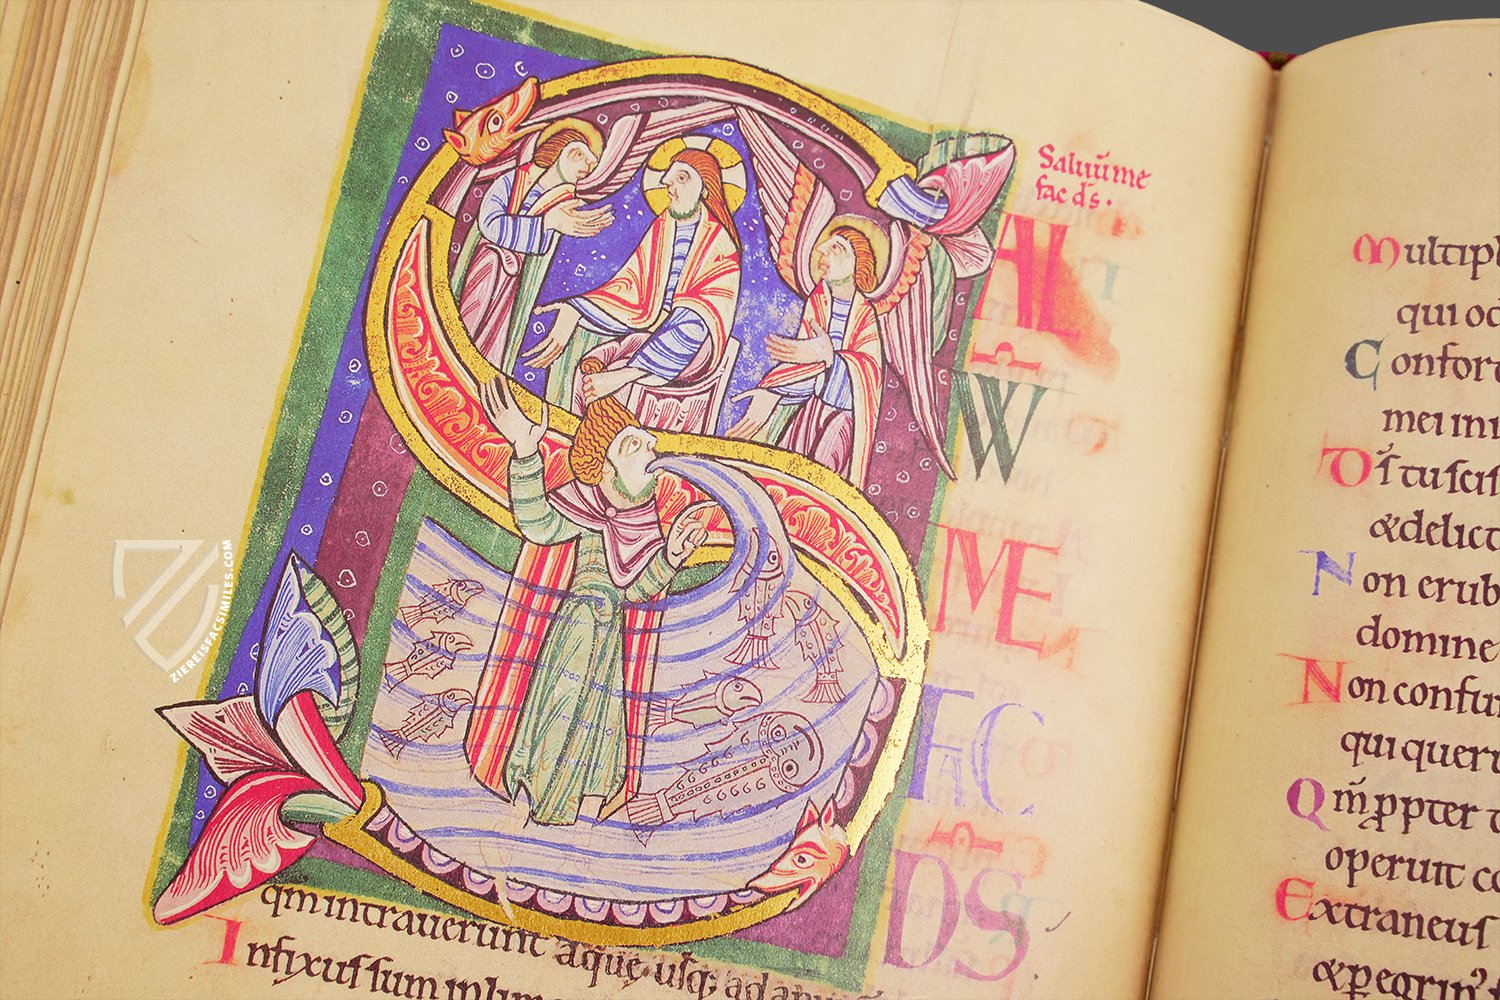 Saluū me
fac d̄s.
SAL
VV
ME
FAC
DS
qm intrauerunt aque, usq; ad
Infixus sum in
Multipl
qui od
Confort
mei ini
D̄s tu scis
&delict
Non erub
domine
Non confun
qui quer
Qm̄ ppter t
operuit co
Extraneus
&pegrin
ZIEREISFACSIMILES.COM